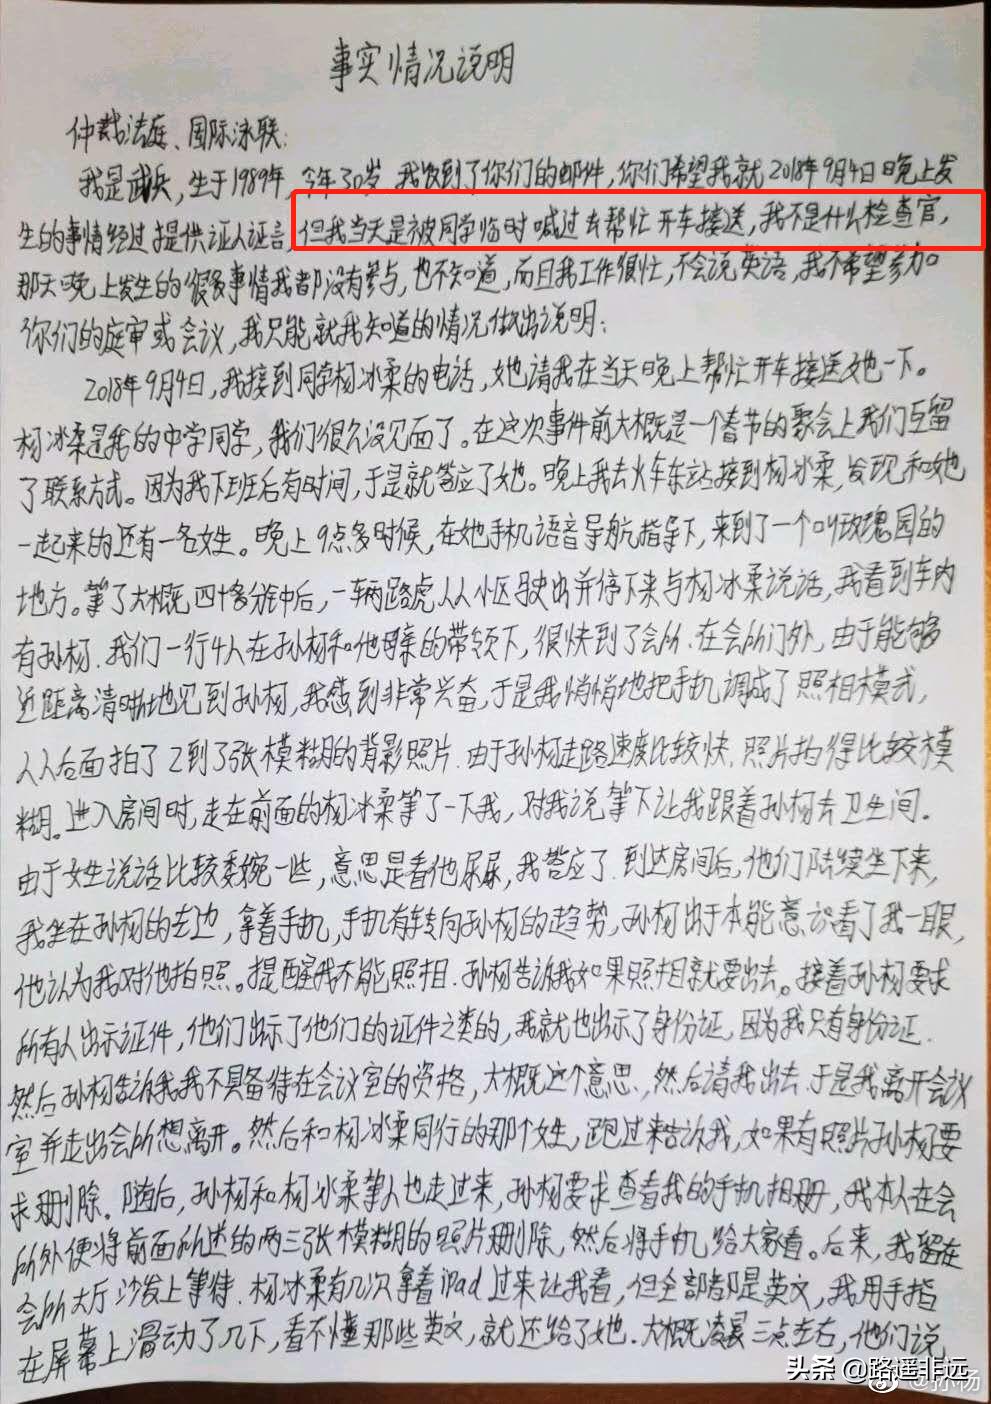 事实情况说明
仲裁法庭、国际泳联:
我是武兵,生于1989年,今年30岁.我收到了你们的邮件,你们希望我就2018年9月4日晚上发
生的事情经过提供证人证言,但我当天是被同学临时喊过去帮忙开车接送,我不是什么检查官,
那天晚上发生的很多事情我都没有参与,也不知道,而且我工作很忙,不会说英语,我不希望参加
你们的庭审或会议,我只能就我知道的情况做出说明:
2018年9月4日,我接到同学杨冰柔的电话,她请我在当天晚上帮忙开车接送她一下。
杨冰柔是我的中学同学,我们很久没见面了。在这次事件前大概是一个春节的聚会上我们互留
了联系方式。因为我下班后有时间,于是就答应了她。晚上我去火车东站接到杨冰柔,发现和她
一起来的还有一名女生。晚上9点多时候,在她手机语音导航指导下,来到了一个叫玫瑰园的
地方。等了大概四十多分钟后,一辆路虎从小区驶出并停下来与杨冰柔说话,我看到车内
有孙杨.我们一行4人在孙杨和他母亲的带领下,很快到了会所.在会所门外,由于能够
近距离清晰地见到孙杨,我感到非常兴奋,于是我悄悄地把手机调成了照相模式,
从后面拍了2到了张模糊的背影照片.由于孙杨走路速度比较快,照片拍得比较模
糊。进入房间时,走在前面的杨冰柔等了一下我,对我说,等下让我跟着孙杨去卫生间.
由于女生说话比较委婉一些,意思是看他尿尿,我答应了.到达房间后,他们陆续坐下来,
我坐在孙杨的左边,拿着手机,手机有转向孙杨的趋势,孙杨出于本能意识看了我一眼,
他认为我对他拍照。提醒我不能照相.孙杨告诉我如果照相就要出去。接着孙杨要求
所有人出示证件,他们出示了他们的证件之类的,我就也出示了身份证,因为我只有身份证.
然后孙杨告诉我我不具备待在会议室的资格,大概这个意思,然后请我出去.于是我离开会议
室并走出会所想离开。然后和杨冰柔同行的那个女生,跑过来告诉我,如果有照片孙杨要
求删除.随后,孙杨和杨冰柔等人也走过来,孙杨要求查看我的手机相册,我本人在会
所外便将前面所述的两三张模糊的照片删除,然后将手机给大家看。后来,我留在
会所大厅沙发上等待.杨冰柔有几次拿着iPad过来让我看,但全部都是英文,我用手指
在屏幕上滑动了几下,看不懂那些英文,就还给了她.大概凌晨三点左右,他们说
头条@路遥非远
@孙杨